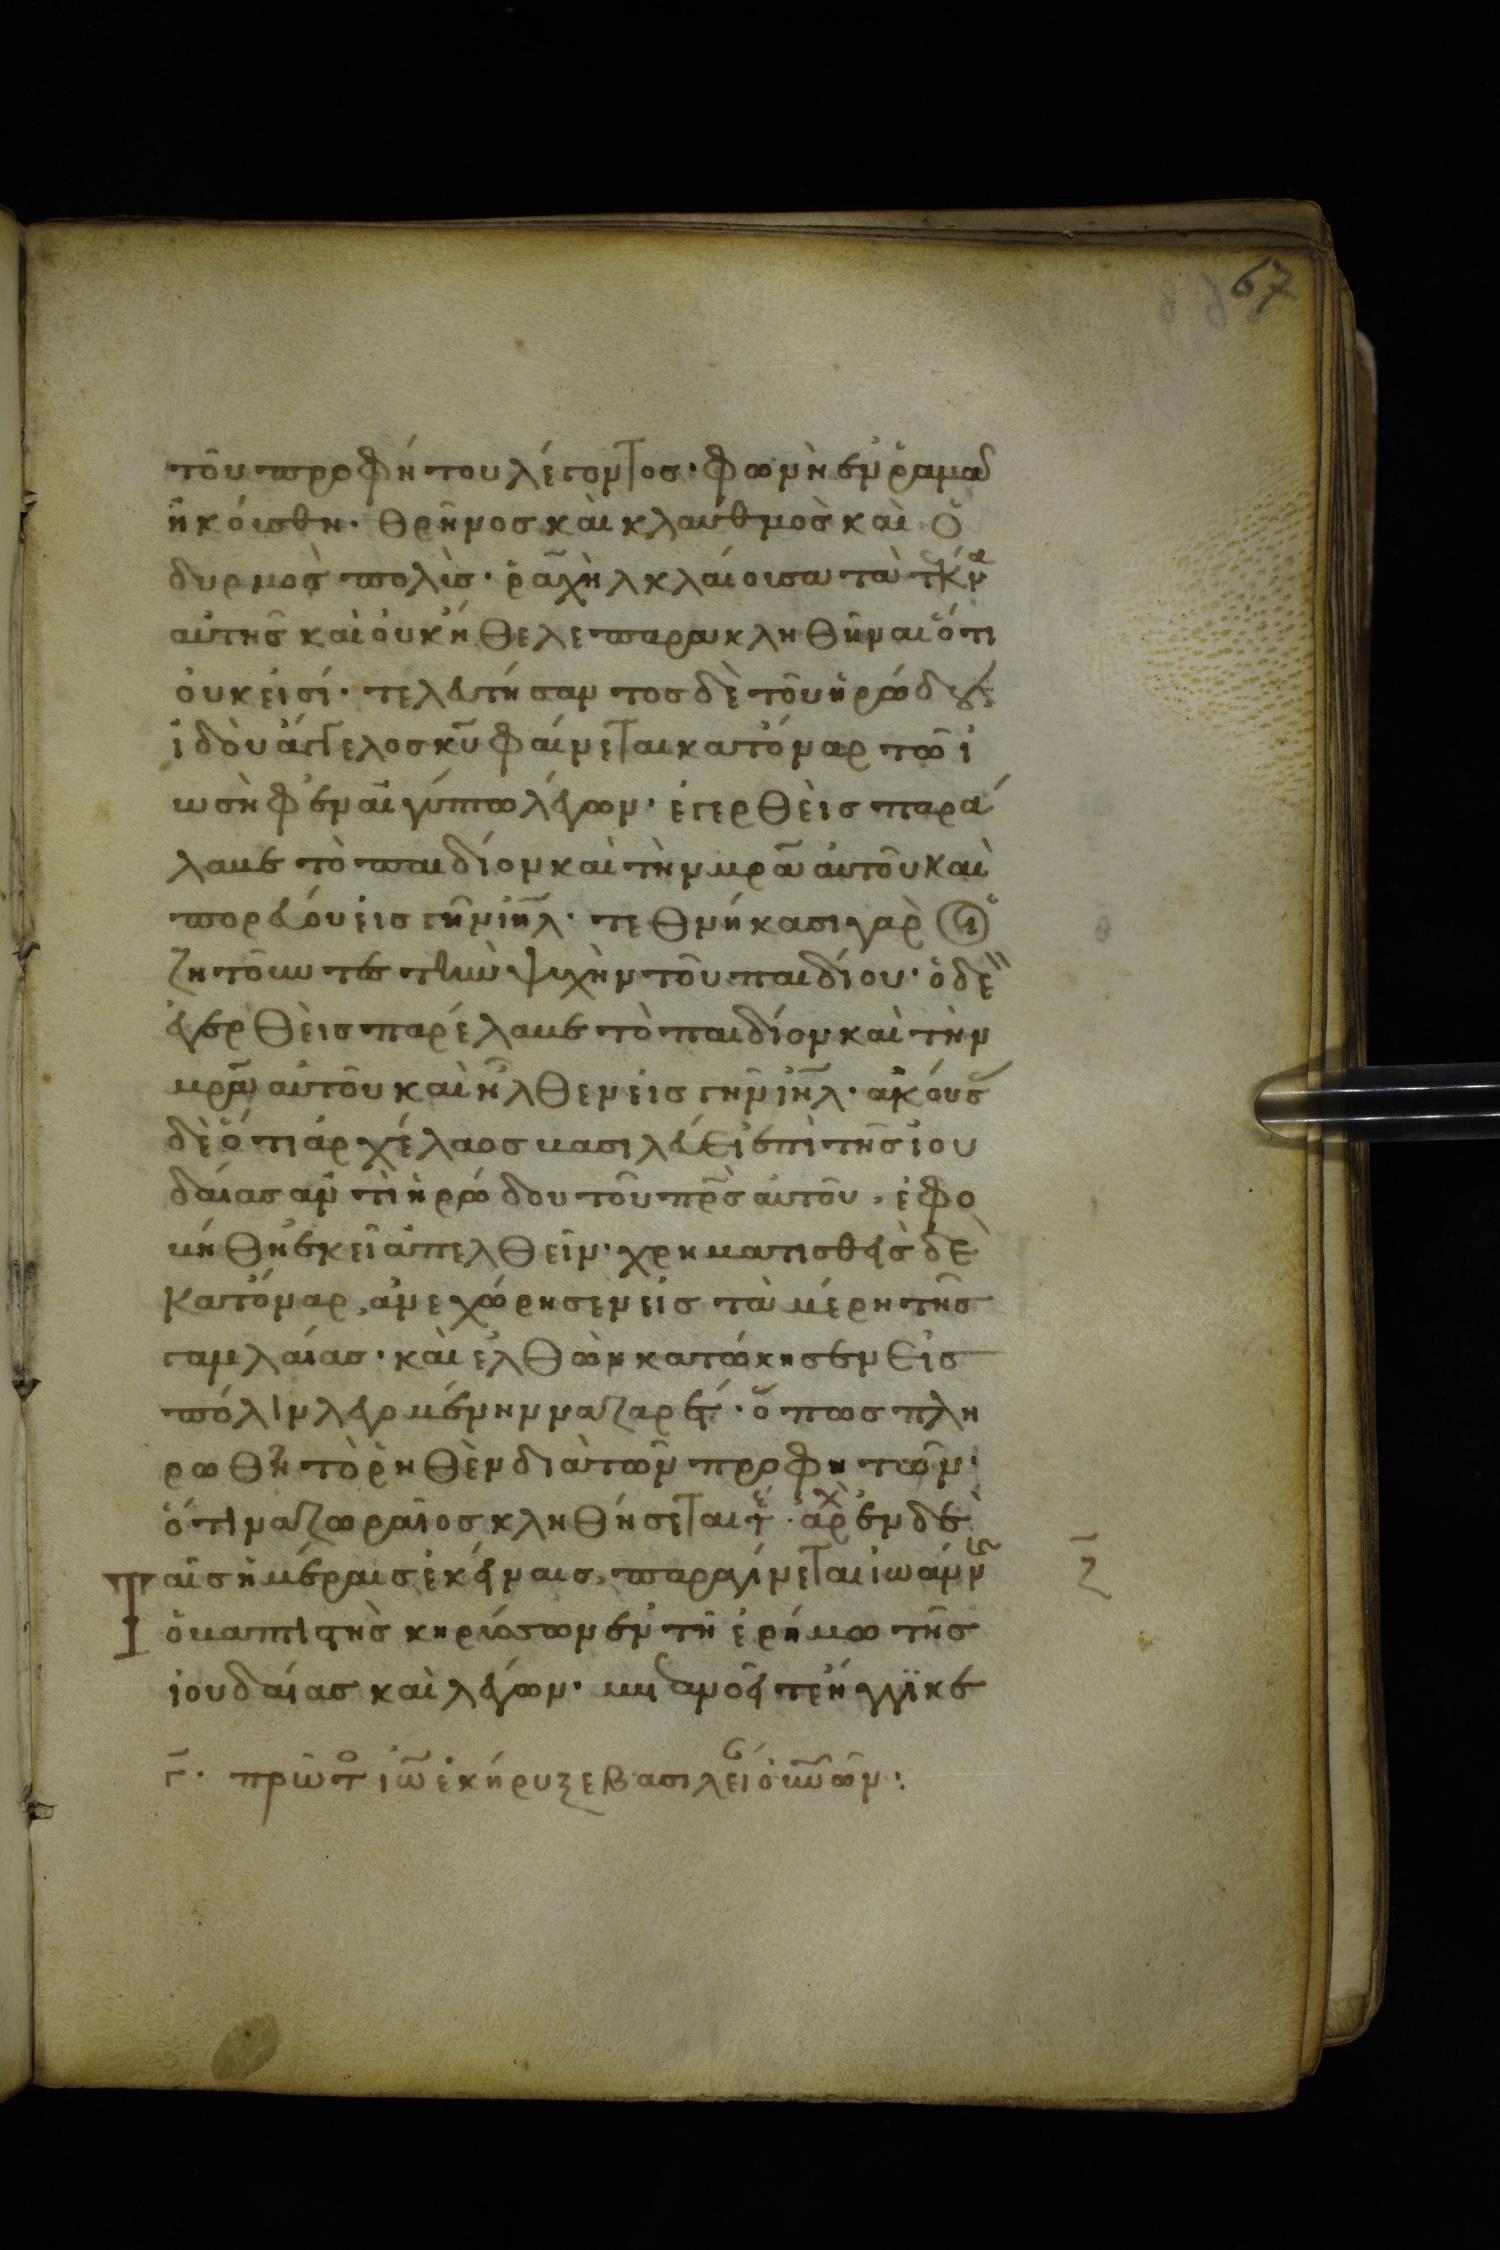 67
τοῦ προφήτου λέγοντος· φωνὴ ἐν ῥαμᾶ
ἠκούσθη. θρῆνος καὶ κλαυθμὸς καὶ ὁ
δυρμὸς πολὺς· ῥαχὴλ κλαίουσα τὰ τέκνα
αὐτῆς καὶ οὐκ ἤθελε παρακληθῆναι ὅτι
οὐκ εἰσί· τελευτήσαντος δὲ τοῦ ἡρώδου,
ἰδοὺ ἄγγελος κ̅υ̅ φαίνεται κατόναρ τῶ ἰ
ωσὴφ ἐν αἰγύπτω λέγων· ἐγερθεὶς παρά
λαβε τὸ παιδίον καὶ τὴν μ̅ρ̅α̅ αὐτοῦ καὶ
πορεύου εἰς γῆν ι̅η̅λ̅· τεθνήκασι γαρ οἱ
ζητοῦντες τὴν ψυχὴν τοῦ παιδίου· ὁ δὲ
ἐγερθεὶς παρέλαβε τὸ παιδίον καὶ τὴν
μ̅ρ̅α̅ αὐτοῦ καὶ ἦλθεν εἰς γῆν ι̅η̅λ̅· ἀκούσ
δὲ ὅτι ἀρχέλαος βασιλεύει ἐπὶ τῆς ἰου
δαίας ἀντὶ ἡρώδου τοῦ π̅ρ̅ς̅ αὐτοῦ, ἐφο
βήθη ἐκεῖ ἀπελθεῖν· χρηματισθεὶς δὲ
κατόναρ, ἀνεχώρησεν εἰς τὰ μέρη τῆς
γαλιλαίας· καὶ ἐλθὼν κατώκησεν εἰς
πόλιν λεγομένην ναζαρέτ· ὅπως πλη
ρωθῆ τὸ ῥηθὲν διὰ τῶν προφητῶν·
ὅτι ναζωραῖος κληθήσεται τε· ἀρχ ἐν δὲ
Ταῖς ἡμέραις ἐκείναις, παραγίνεται ἰωάνν
ὁ βαπτιστὴς κηρύσσων ἐν τῆ ἐρήμω τῆς
ἰουδαίας καὶ λέγων· μετανοεῖτε ἤγγικε
ζ̅
γ̅· πρῶτο ἰω̅ ἐκήρυξε βασιλεί οὐνῶν·